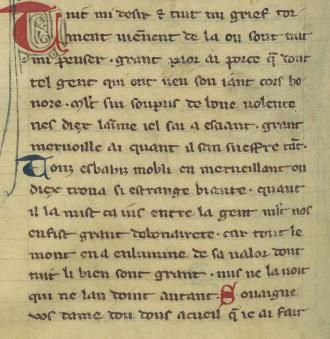 Tuit mi desir & tuit mi grief tor
ment uienent de la ou sont tuit
mi penser · grant paor ai porce q̃ tout
tel gent qui ont ueu son iant cors ho
nore · mlt sui soupris de bone uolente
nes diex laime iel sai a esciant · grant
merueille ai quant il san sueffre tãt·
Touz esbahiz mobli en merueillant ou
diex troua si estrange biaute · quant
il la mist ca ius entre la gent mlt nos
enfist grant debonairete · car tout le
mont en a enlumine de sa ualor dont
tuit li bien sont grant · nus ne la uoit
qui ne lan doint autant · Souaigne
uos dame dou dous acueil q̃ ie ai fait